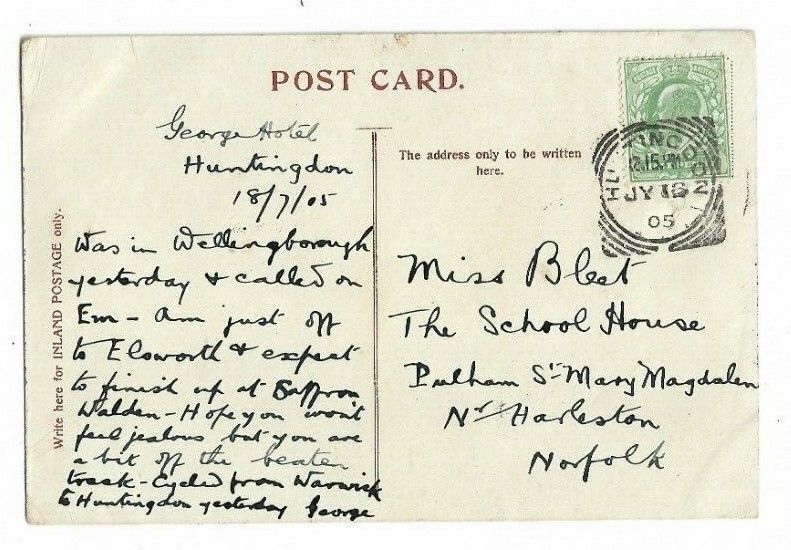 POST CARD.
George Hotel
Huntingdon
18/7/05
Was in Wellingborough
yesterday & called on
Em - Am just off
to Elsworth & expect
to finish up at Saffron
Walden - Hope you won't
feel jealous but you are
a bit off the beaten
track - Cycled from Warwick
to Huntingdon yesterday George
Write here for INLAND POSTAGE only.
The address only to be written
here.
HUNTINGDON
12.15PM
JY 18
05
Miss Blest
The School House
Pulham St. Mary Magdalen
Nr Harleston
Norfolk